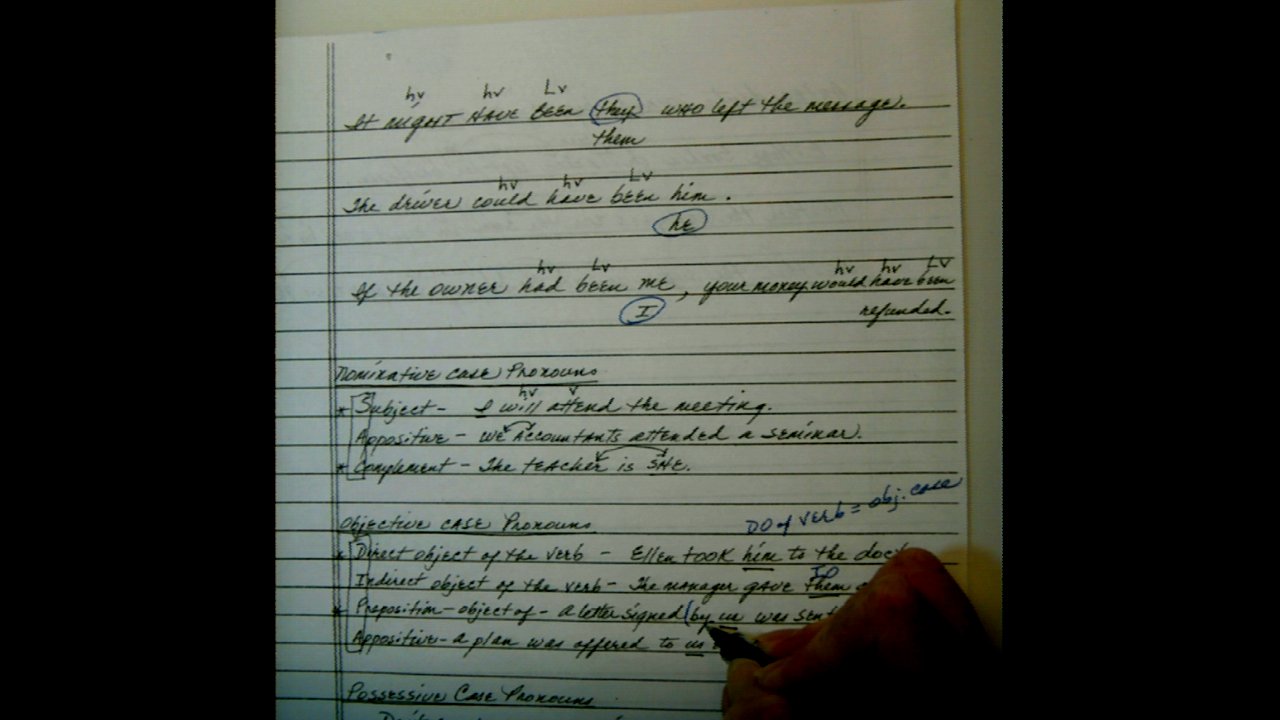 hv hv Lv
It might have been they who left the message.
them
hv hv Lv
The driver could have been him.
he
hv Lv hv hv Lv
If the owner had been me, your money would have been
I refunded.
Nominative Case Pronouns
hv v
* Subject - I will attend the meeting.
Appositive - we accountants attended a seminar.
* Complement - The teacher is she.
DO of verb = obj. case
Objective Case Pronouns
* Direct object of the verb - Ellen took him to the
IO
Indirect object of the verb - The manager gave them
* Preposition - object of - a letter signed (by us was
Appositive - a plan was offered to us
Possessive Case Pronouns